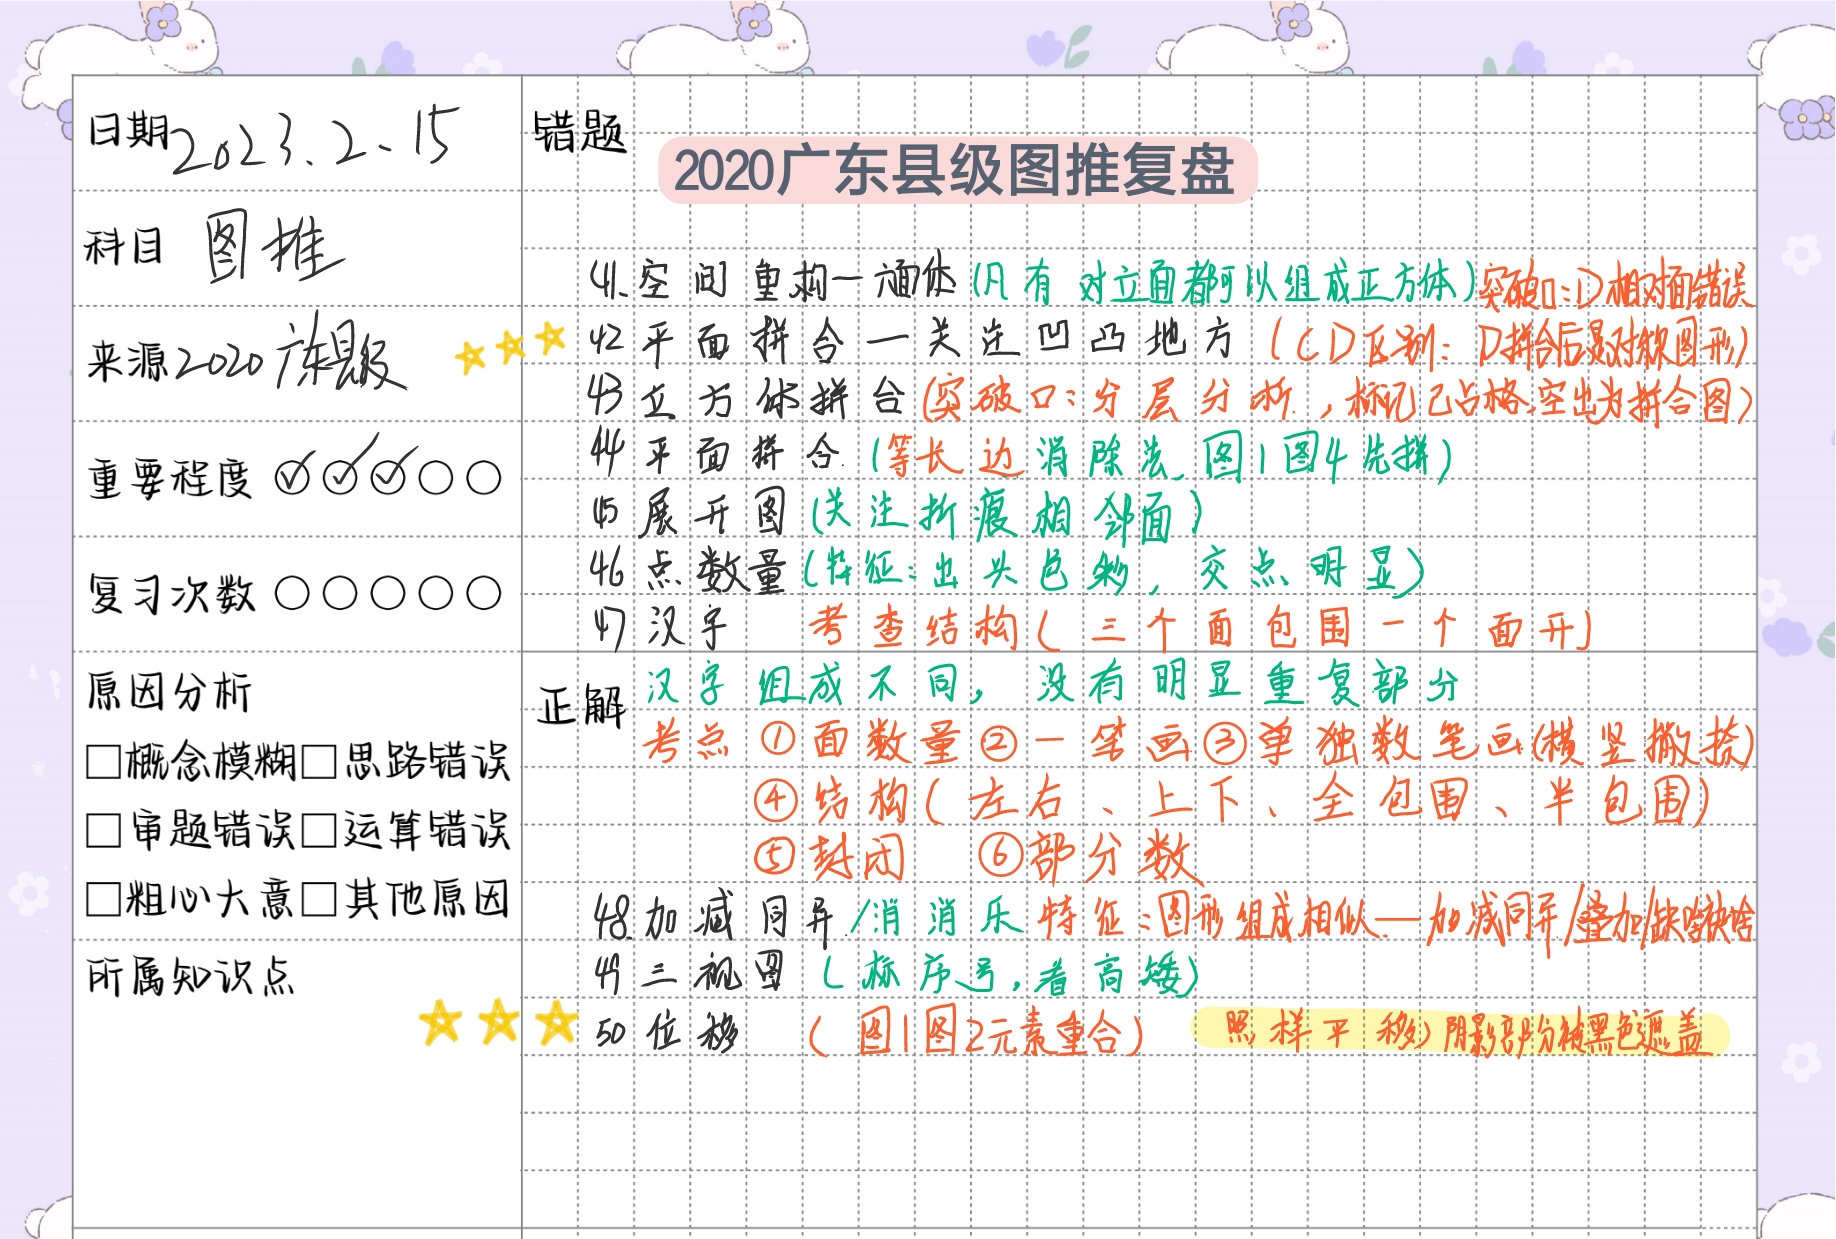 日期 2023.2.15
科目 图推
来源 2020广东县级
重要程度
复习次数
原因分析
□概念模糊□思路错误
□审题错误□运算错误
□粗心大意□其他原因
所属知识点
错题
2020广东县级图推复盘
41.空间重构一六面体(凡有对立面都可以组成正方体)突破口:D相对面错误
42平面拼合一关注凹凸地方(CD区别:D拼合后是对称图形)
43立方体拼合(突破口:分层分析,标记已占格,空出为拼合图)
44平面拼合.(等长边消除法.图1图4先拼)
45展开图(关注折痕相邻面)
46点数量(特征:出头色彩,交点明显)
47汉字 考查结构(三个面包围一个面开)
正解
汉字组成不同,没有明显重复部分
考点①面数量②一笔画③单独数笔画(横竖撇捺)
④结构(左右、上下、全包围、半包围)
⑤封闭 ⑥部分数
48.加减同异/消消乐 特征:图形组成相似——加减同异/叠加/缺啥补啥
49三视图(标序号,看高矮)
50位移 (图1图2元素重合) 照样平移,阴影部分被黑色遮盖